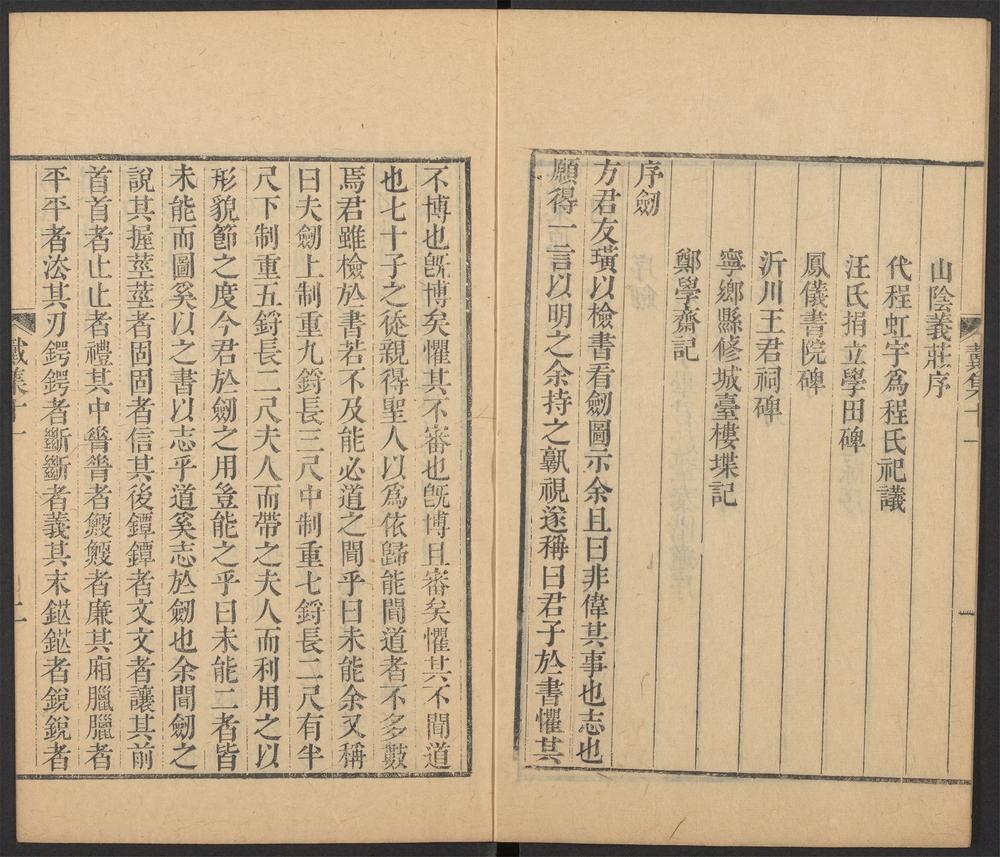 山陰義莊序
代程虹宇爲程氏祀議
汪氏捐立學田碑
鳳儀書院碑
沂川王君祠碑
寧鄉縣修城臺樓堞記
鄭學齋記
序劒
方君友璜以檢書看劒圖示余且曰非偉其事也志也
願得一言以明之余持之孰視遂稱曰君子於書懼其
不博也旣博矣懼其不審也旣博且審矣懼其不聞道
也七十子之從親得聖人以爲依歸能聞道者不多數
焉君雖檢於書若不及能必道之聞乎曰未能余又稱
曰夫劒上制重九鋝長三尺中制重七鋝長二尺有半
尺下制重五鋝長二尺夫人而帶之夫人而利用之以
形貌節之度今君於劒之用豈能之乎曰未能二者皆
未能而圖奚以之書以志乎道奚志於劒也余聞劒之
說其握莖莖者固固者信其後鐔鐔者文文者讓其前
首首者止止者禮其中脊脊者鯁鯁者廉其廂臘臘者
平平者法其刃鍔鍔者斷斷者義其末鍦鍦者銳銳者
戴集十一
二